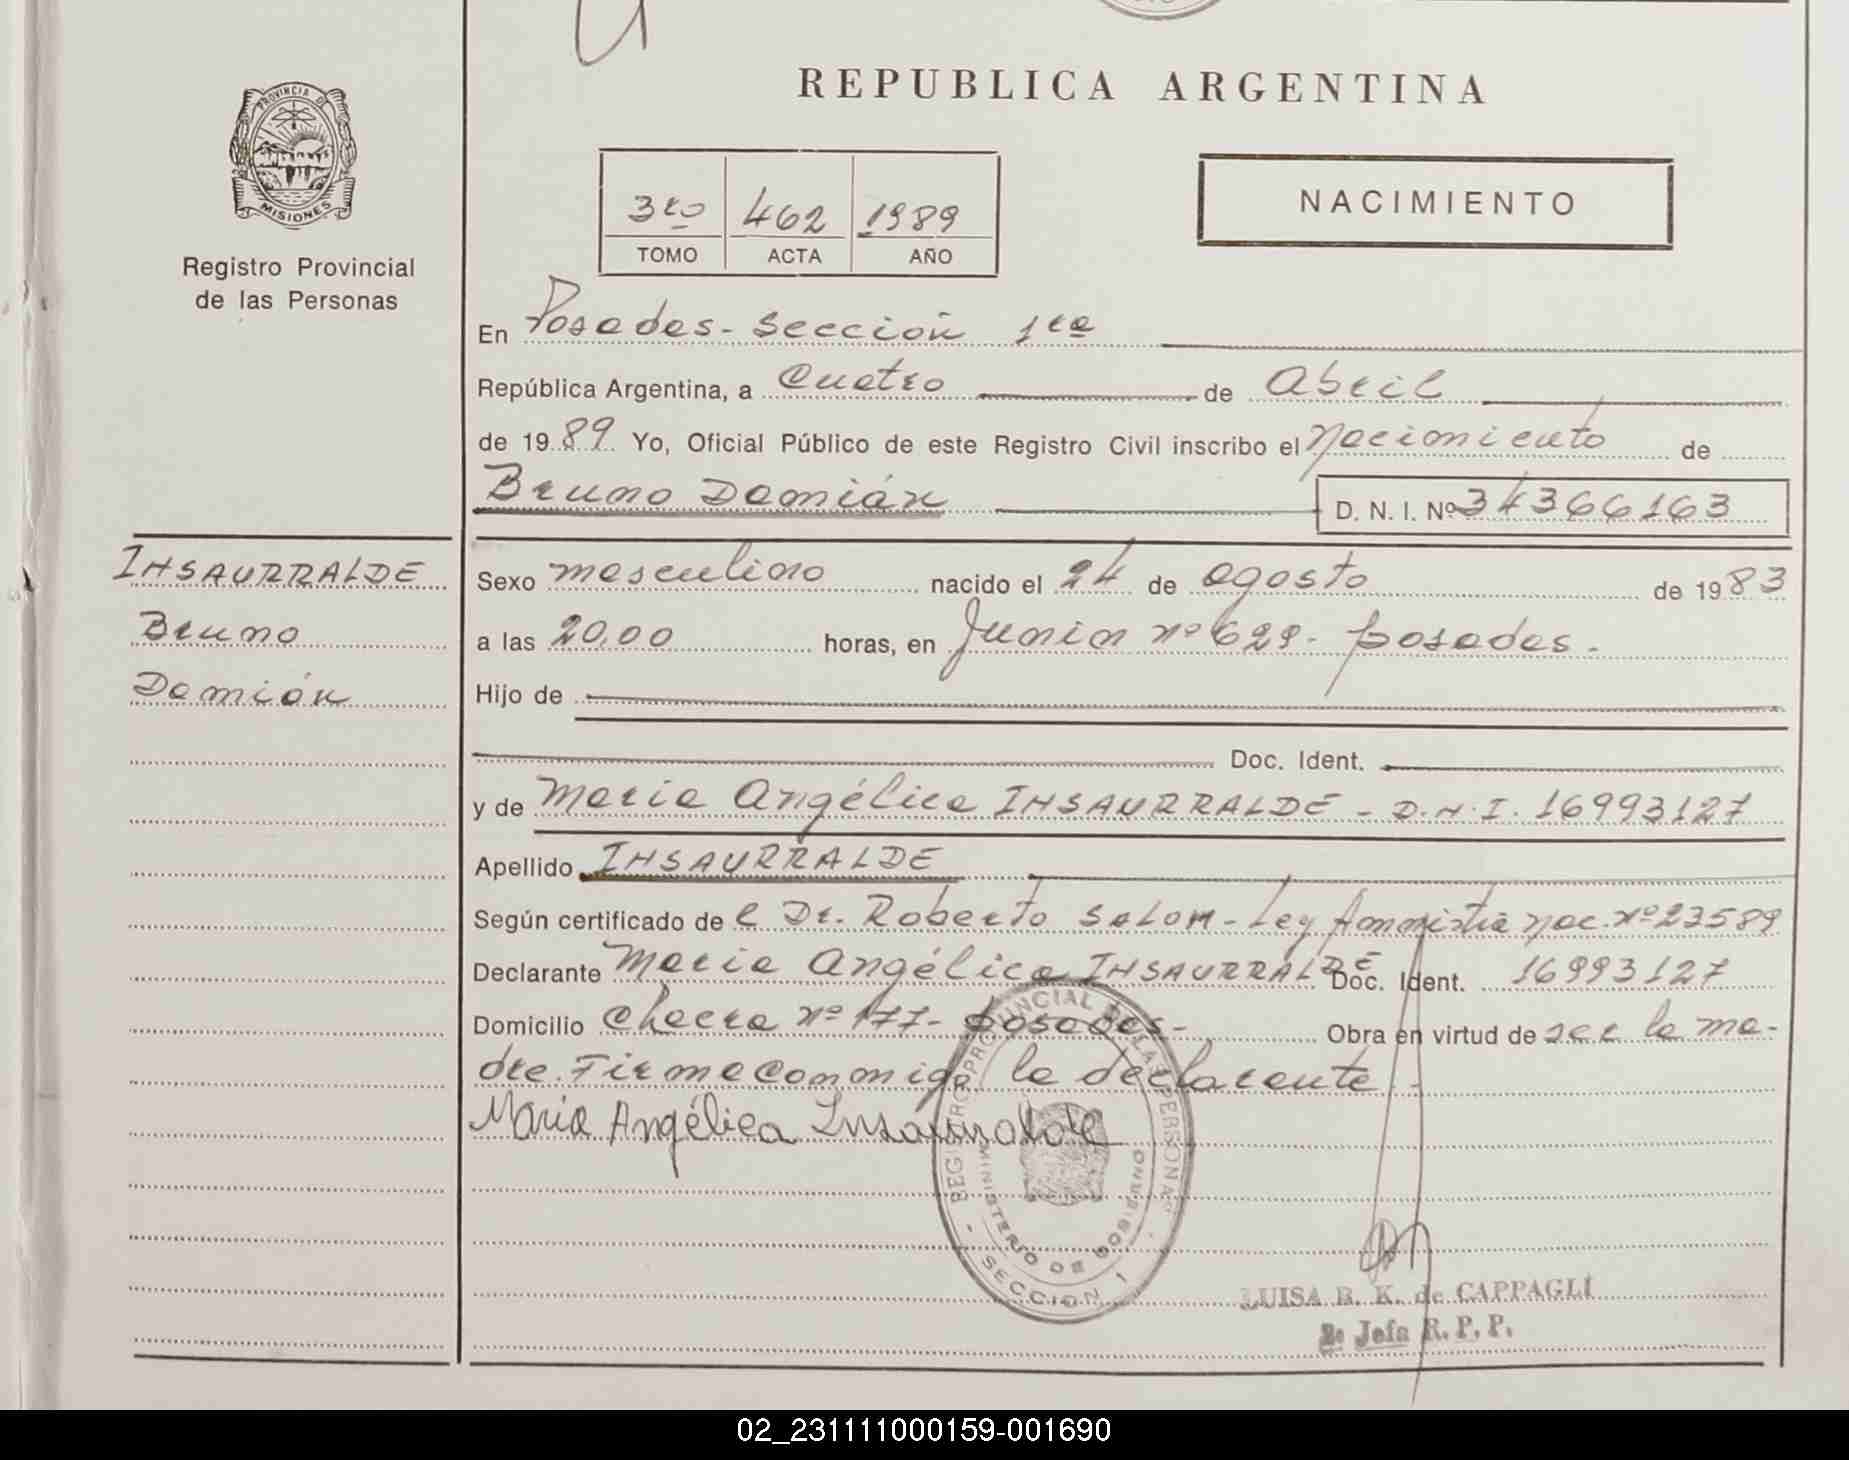 REPUBLICA ARGENTINA
PROVINCIA D
MISIONES
Registro Provincial
de las Personas
3ro 462 1989
TOMO ACTA AÑO
NACIMIENTO
En Posadas - Sección 1ra
República Argentina, a Cuatro de Abril
de 1989. Yo, Oficial Público de este Registro Civil inscribo el Nacimiento de
Bruno Damián D. N. I. Nº 34366163
INSAURRALDE
Bruno
Damián
Sexo masculino nacido el 24 de agosto de 1983
a las 20,00 horas, en Junin nº 629 - posadas -
Hijo de
Doc. Ident.
y de Maria Angélica INSAURRALDE - D.N.I. 16993127
Apellido INSAURRALDE
Según certificado de l Dr. Roberto Salom - Ley Ammistia nac. nº 23589
Declarante Maria Angélica INSAURRALDE Doc. Ident. 16993127
Domicilio Chacra nº 177 - posadas - Obra en virtud de ser la ma-
dre. Firma conmigo la declarante.
Maria Angélica Insaurralde
REGISTRO PROVINCIAL DE LAS PERSONAS
MINISTERIO DE GOBIERNO
- SECCION 1 -
LUISA R. K. de CAPPAGLI
2ª Jefa R. P. P.
02_231111000159-001690